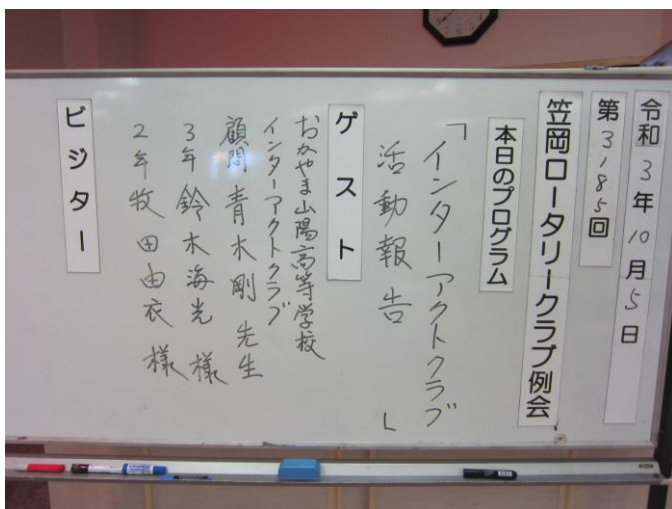 令和3年10月5日
第3185回
笠岡ロータリークラブ例会
本日のプログラム
「インターアクトクラブ
活動報告」
ゲスト
おかやま山陽高等学校
インターアクトクラブ
顧問 青木剛 先生
3年 鈴木海光 様
2年 牧田由衣 様
ビジター